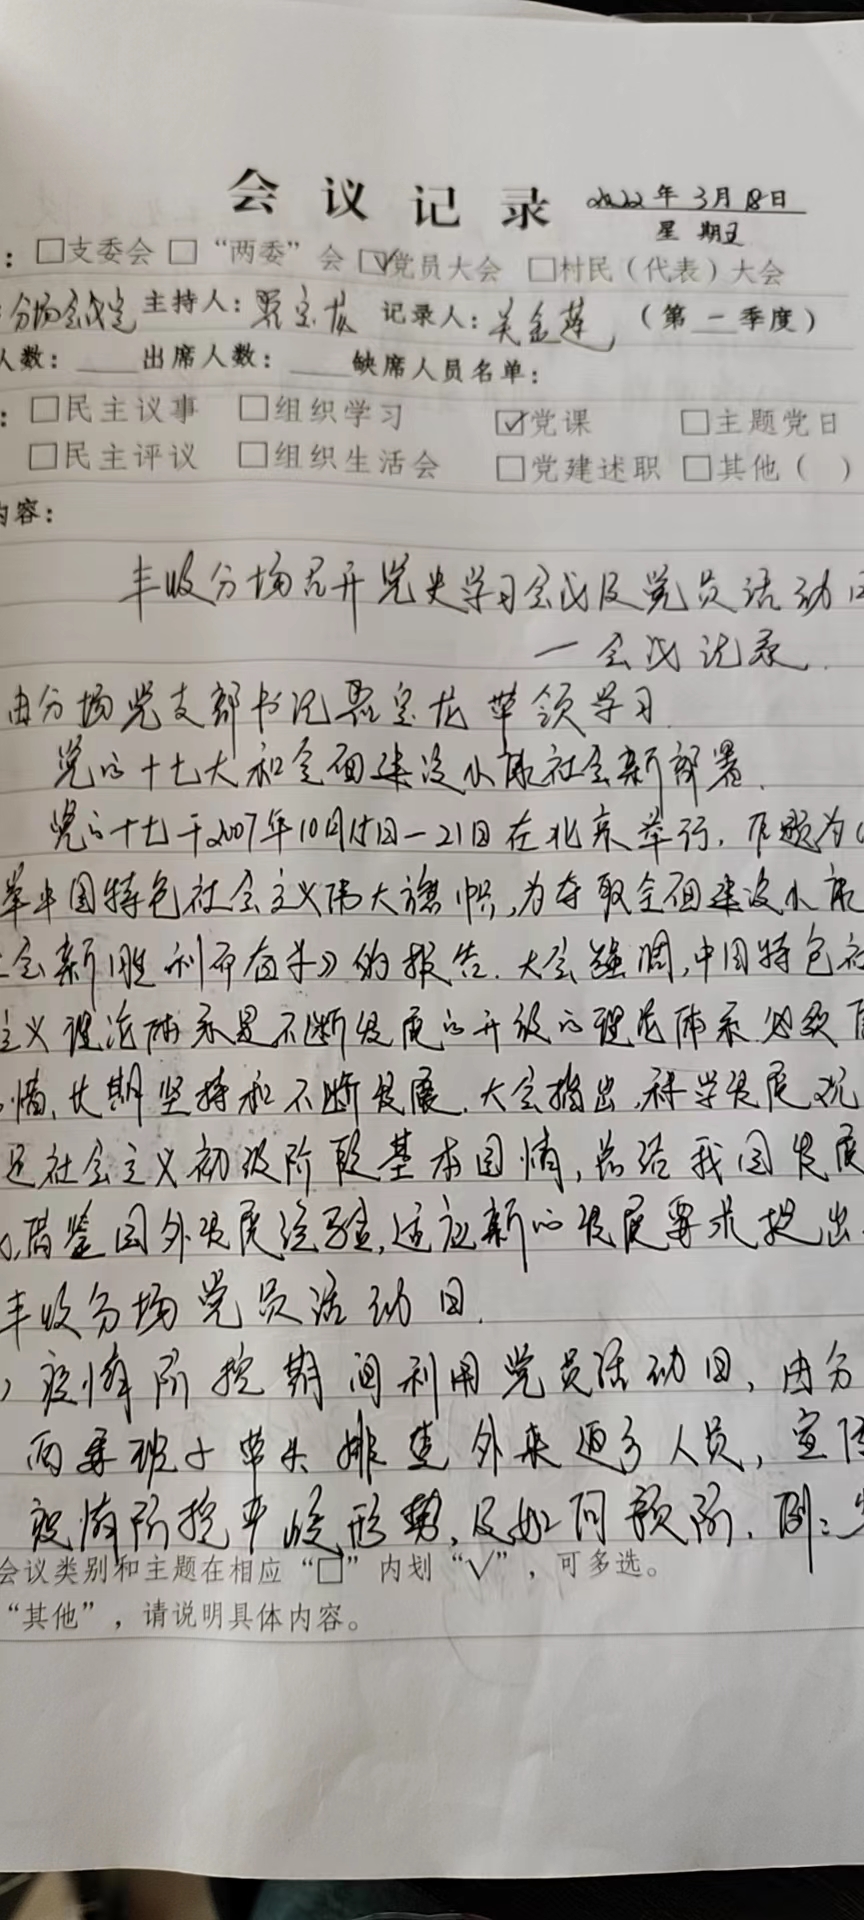 会议记录 2022年3月18日
星期五
：□支委会 □“两委”会 ☑党员大会 □村民（代表）大会
分场会议室 主持人： 记录人：关金莲 （第一季度）
人数： 出席人数： 缺席人员名单：
：□民主议事 □组织学习 ☑党课 □主题党日
□民主评议 □组织生活会 □党建述职 □其他（ ）
内容：
丰收分场召开党史学习会议及党员活动日
一会议记录.
由分场党支部书记 宝龙带领学习.
党的十七大和全面建设小康社会新部署.
党的十七于2007年10月15日一21日在北京举行.作题为《
举中国特色社会主义伟大旗帜,为夺取全面建设小康
社会新胜利而奋斗》的报告.大会强调,中国特色社
主义理论体系是不断发展的开放的理论体系必须
情、长期坚持和不断发展.大会指出,科学发展观
足社会主义初级阶段基本国情,总结我国发展
,借鉴国外发展经验,适应新的发展要求提出
丰收分场党员活动日.
）疫情防控期间利用党员活动日,由分
两委班子带头排查外来返乡人员,宣传
疫情防控平峻形势,及如何预防.例:
会议类别和主题在相应“□”内划“√”，可多选。
“其他”，请说明具体内容。